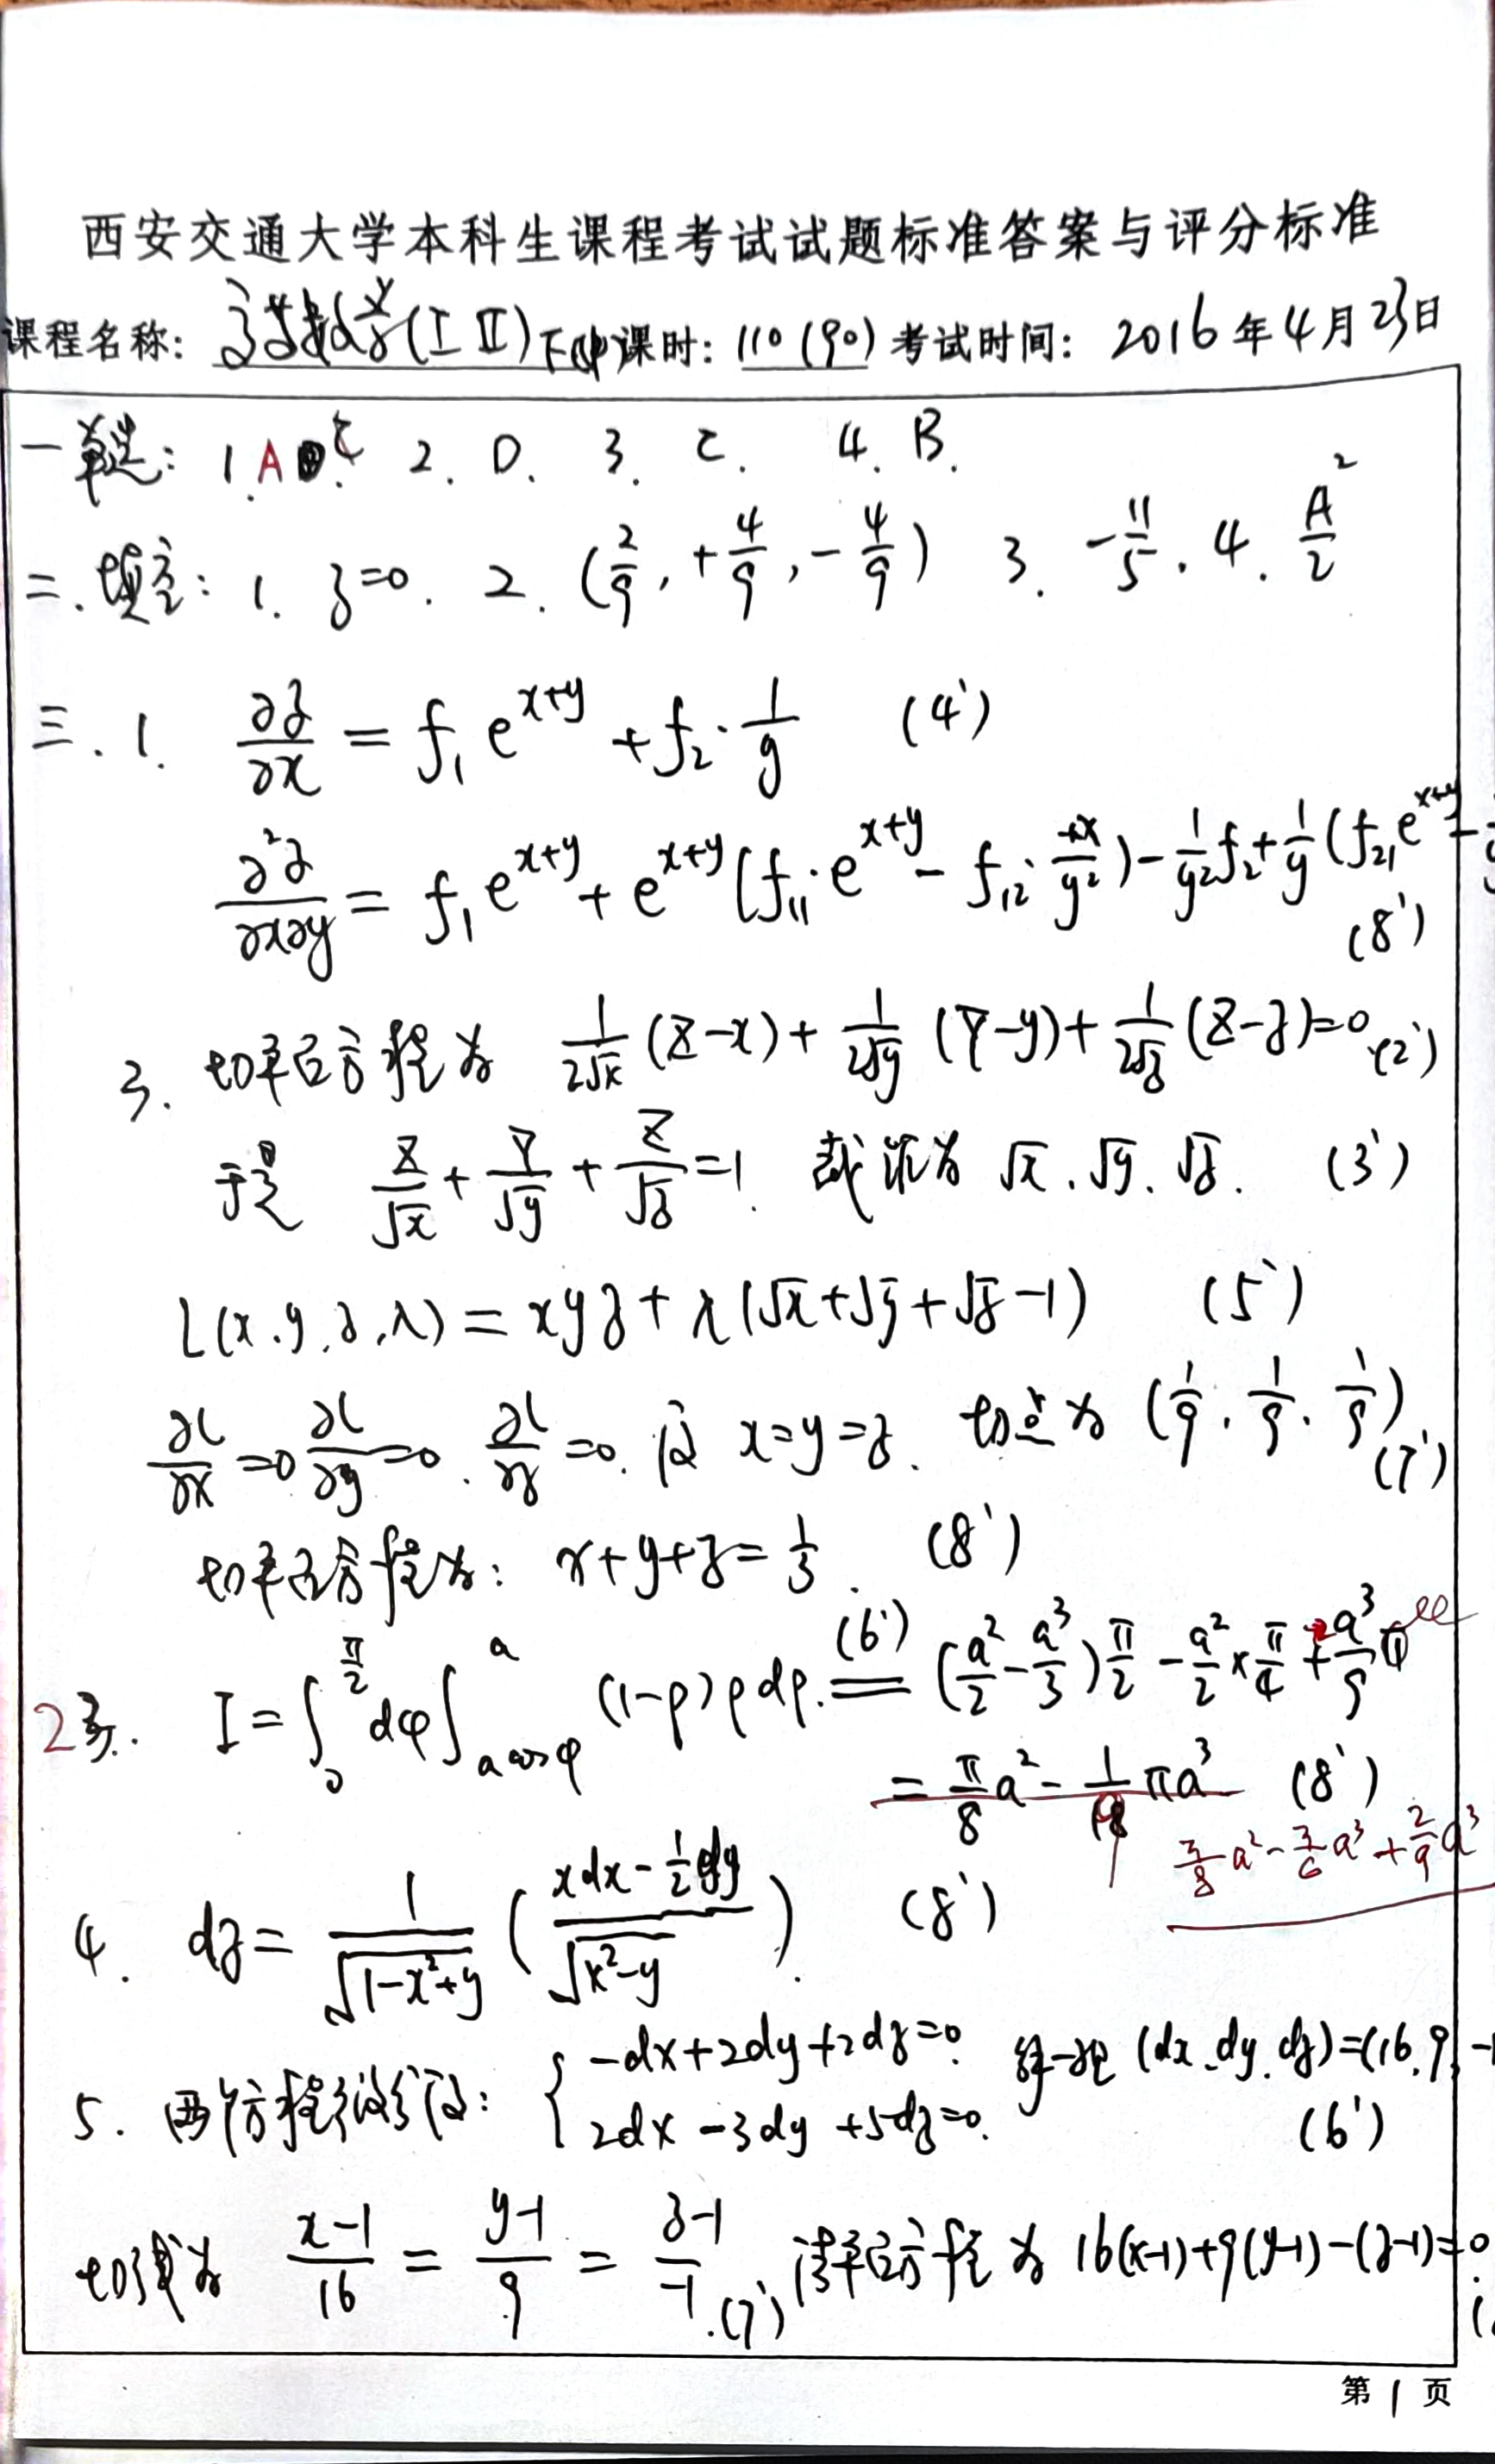 西安交通大学本科生课程考试试题标准答案与评分标准
课程名称: 高等数学(I II)下(中) 课时: 110(90) 考试时间: 2016年4月23日
一 单选: 1. A C 2. D. 3. C. 4. B.
二. 填空: 1. z=0. 2. (2/9, +4/9, -4/9) 3. -11/5. 4. A²/2
三. 1. ∂z/∂x = f₁e^{x+y} + f₂·1/y (4')
∂²z/∂x∂y = f₁e^{x+y} + e^{x+y}(f₁₁·e^{x+y} - f₁₂·x/y²) - 1/y² f₂ + 1/y (f₂₁e^{x+y} -
(8')
3. 切平面方程为 1/2√x (X-x) + 1/2√y (Y-y) + 1/2√z (Z-z)=0 (2')
于是 X/√x + Y/√y + Z/√z = 1. 截距为 √x, √y, √z. (3')
L(x,y,z,λ) = xyz + λ(√x+√y+√z-1) (5')
∂L/∂x=0 ∂L/∂y=0. ∂L/∂z=0. 得 x=y=z. 切点为 (1/9, 1/9, 1/9) (7')
切平面方程为: x+y+z=1/3. (8')
2. I = ∫₀^{π/2} dφ ∫_{a cosφ}^{a} (1-ρ)ρdρ. =(6') (a²/2 - a³/3)π/2 - a²/2×π/4 + 2a³/9
= π/8 a² - 1/18 πa³ (8')
π/8 a² - π/6 a³ + 2/9 a³
4. dz = 1/√(1-x²+y) ((xdx - ½dy)/√(x²-y)). (8')
5. 两方程微分得: { -dx+2dy+2dz=0. 解之 (dx,dy,dz)=(16,9,-1
2dx-3dy+5dz=0. (6')
切线为 (x-1)/16 = (y-1)/9 = (z-1)/-1. (7') 法平面方程为 16(x-1)+9(y-1)-(z-1)=0.
第 1 页